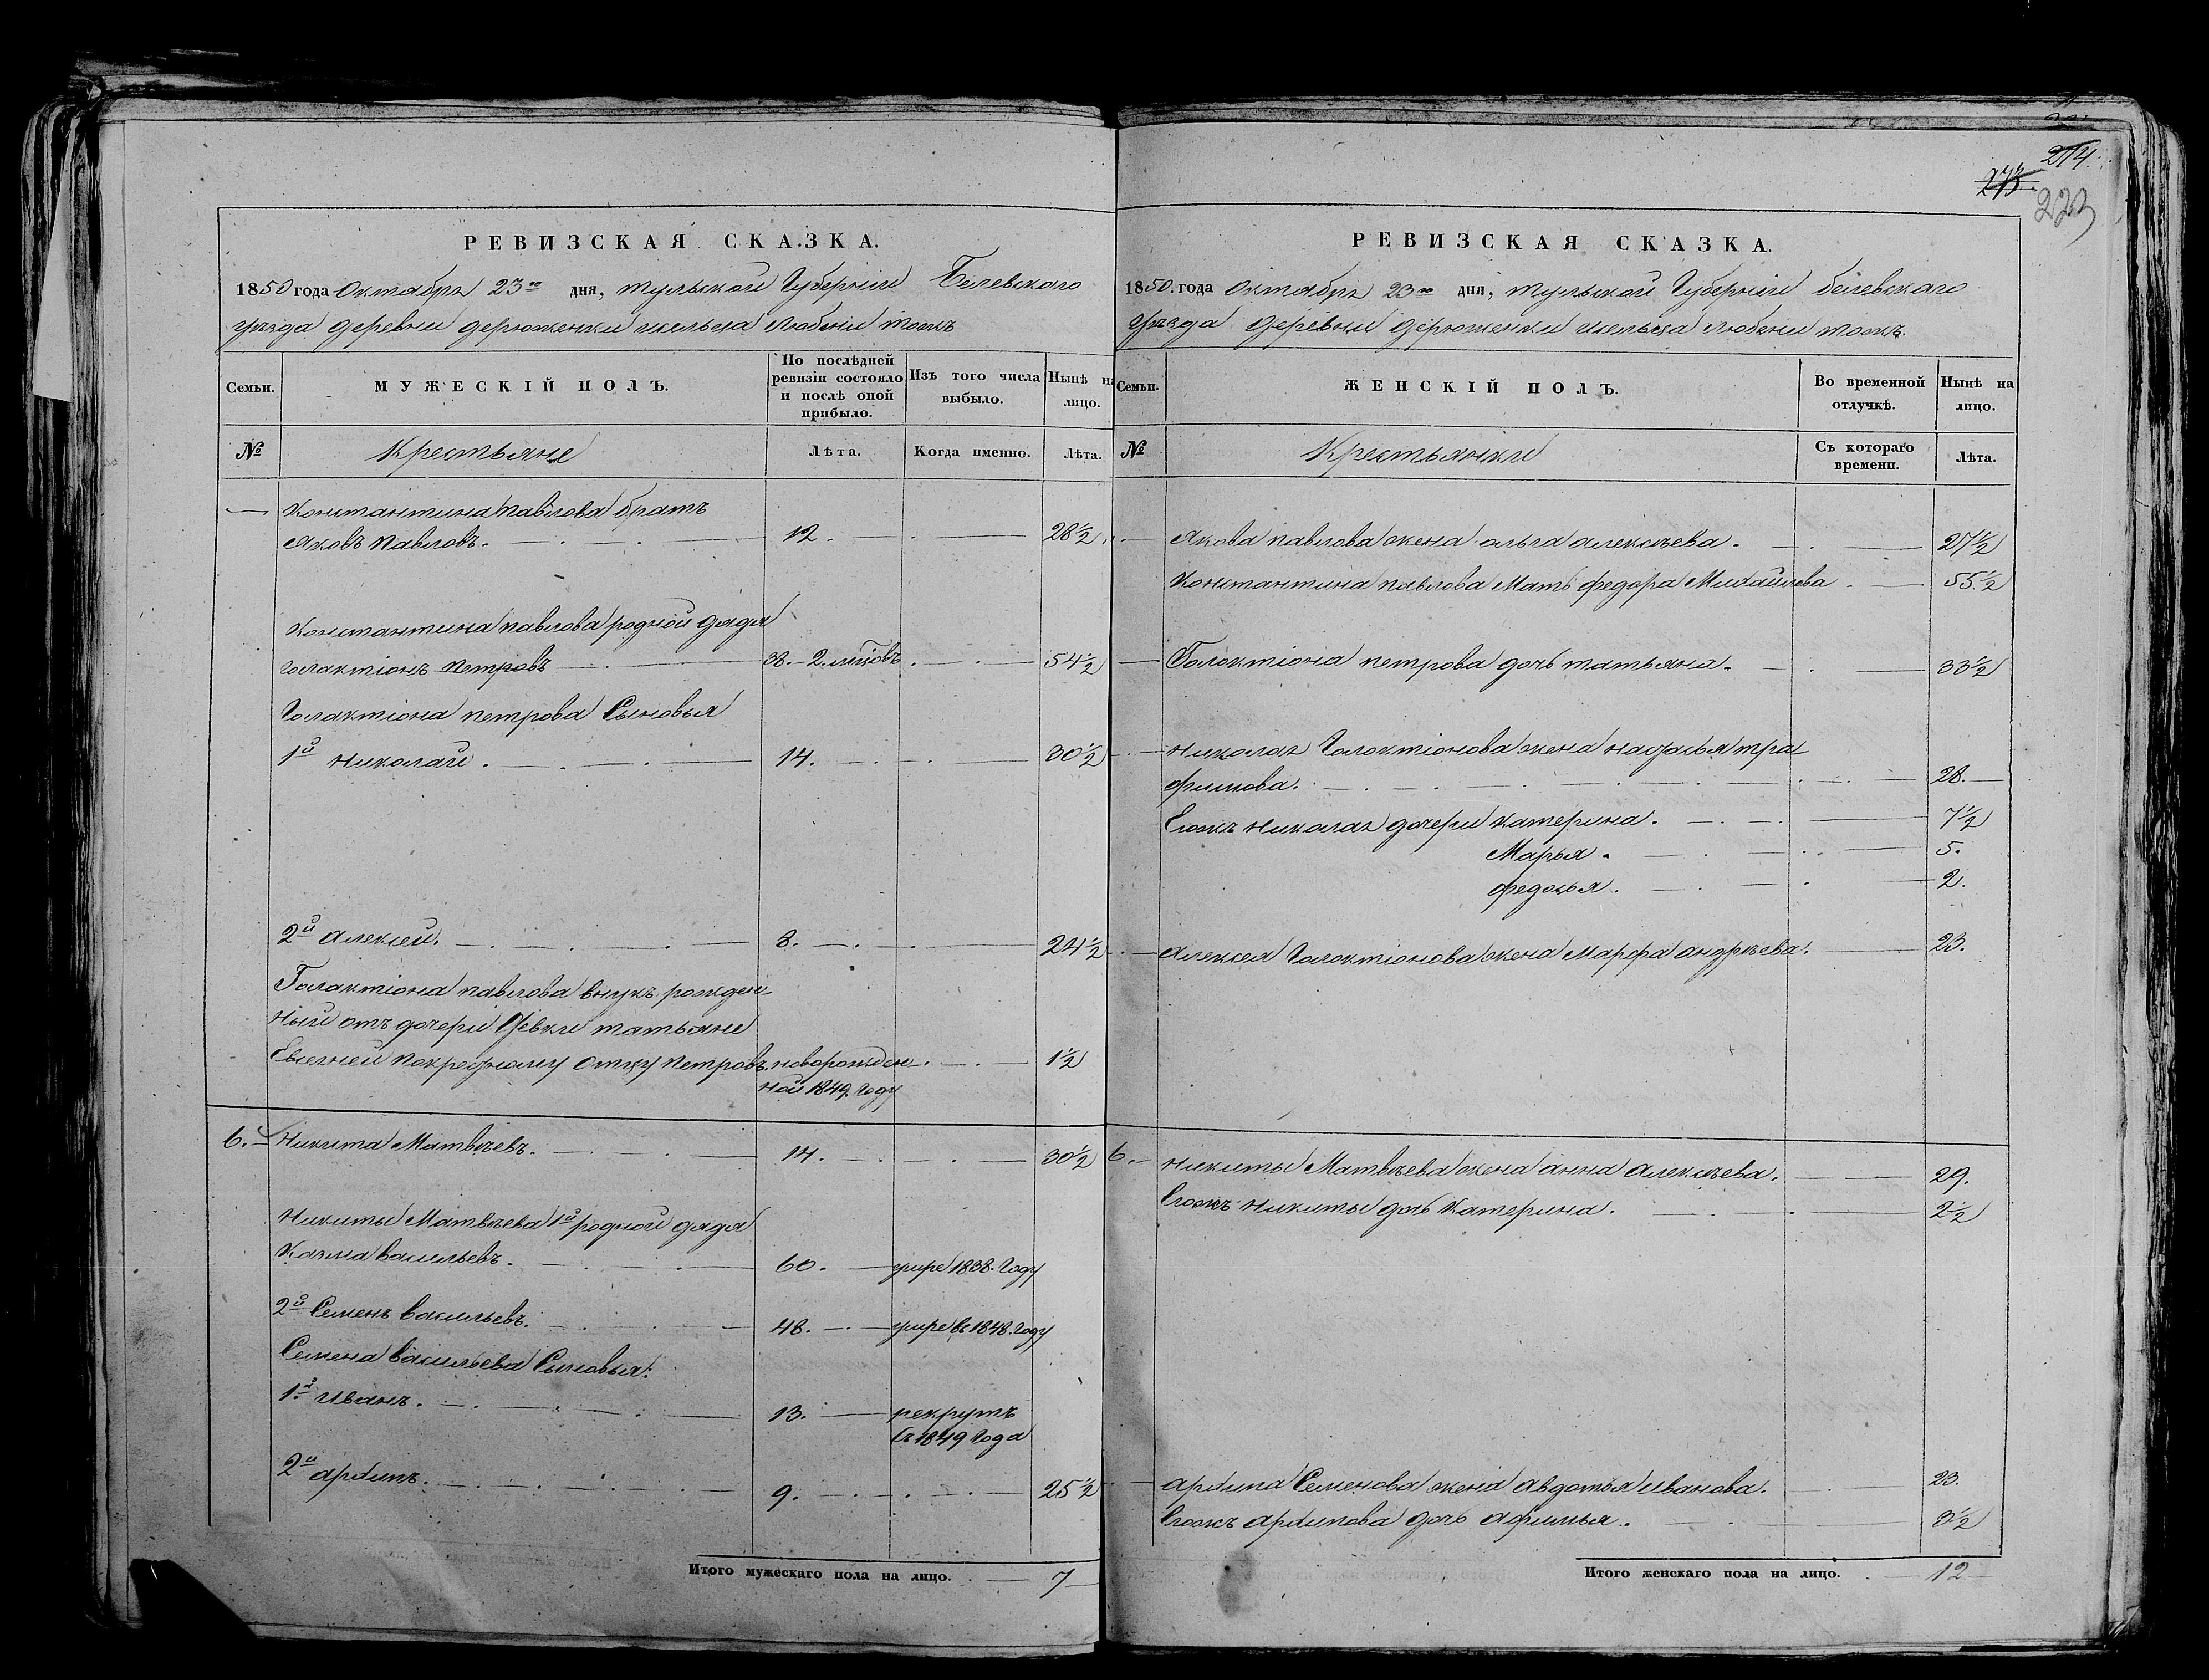 РЕВИЗСКАЯ СКАЗКА.
1850 года Октября 23го дня, тульской Губерніи Белевскаго
уѣзда деревни дерюженки любени тожъ
Семьи.
МУЖЕСКІЙ ПОЛЪ.
По послѣдней ревизіи состояло и послѣ оной прибыло.
Изъ того числа выбыло.
Нынѣ на лицо.
№
Крестьяне
Лѣта.
Когда именно.
Лѣта.
Константина павлова братъ
Яковъ павловъ. 12. 28½
Константина павлова родной дядя
голактіонъ петровъ 38. 54½
Голактіона петрова Сыновья
1й николай. 14. 30½
2й алексей. 8. 24½
Голактіона павлова внукъ рожден-
ный отъ дочери девки татьяне
Евсегней покресному отцу петровъ. новорожден- 1½
ной 1849. Году
6. Никита Матвѣевъ. 14. 30½
Никиты Матвѣева 1й родной дядя
Казма васильевъ. 60. умре 1838. Году
2й Семенъ васильевъ. 48. умре въ 1848. Году
Семена васильева Сыновья:
1й иванъ. 13. рекрутъ
съ 1849 Года
2й архипъ. 9. 25½
Итого мужескаго пола на лицо. 7
214.
273.
223
РЕВИЗСКАЯ СКАЗКА.
1850. года Октября 23го дня, тульской Губерніи белевскаго
Уѣзда деревни дерюженки любени тожъ.
Семьи.
ЖЕНСКІЙ ПОЛЪ.
Во временной отлучкѣ.
Нынѣ на лицо.
№
Крестьянки
Съ котораго времени.
Лѣта.
Якова павлова жена ольга алексѣева. 27½
Константина павлова Мать федора Михайлова 55½
Голоктіона петрова дочь татьяна. 33½
николая Голоктіонова жена настасья тра
фимова. 28.
Егожъ николая дочери катерина. 7½
Марья. 5.
федосья. 2.
алексея Голоктіонова жена Марфа андрѣева. 23.
6. никиты Матвѣева жена анна алексѣева. 29.
Егожъ никиты дочь катерина. 2½
архипа Семенова жена авдотья иванова. 23.
Егожъ архипова дочь афимья. 3½
Итого женскаго пола на лицо. 12